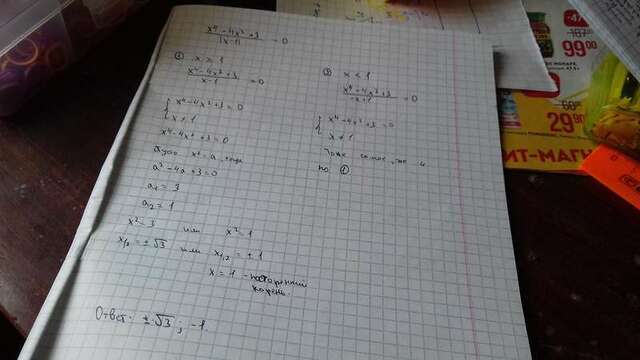 x⁴-4x²+3 / |x-1| = 0
① x > 1
x⁴-4x²+3 / x-1 = 0
{ x⁴-4x²+3=0
x ≠ 1
x⁴-4x²+3=0
x² = a, тогда
a²-4a+3=0
a₁ = 3
a₂ = 1
x²=3 или x²=1
x₁/₂ = ±√3 или x₁,₂ = ±1
x = 1 - посторонний
корень.
Ответ: ±√3; -1.
② x < 1
x⁴-4x²+3 / -x+1 = 0
{ x⁴-4x²+3=0
x ≠ 1
Тоже самое, же и
по ①
-47
187
99⁰⁰
60
29⁹⁰
ИТ-МАГН